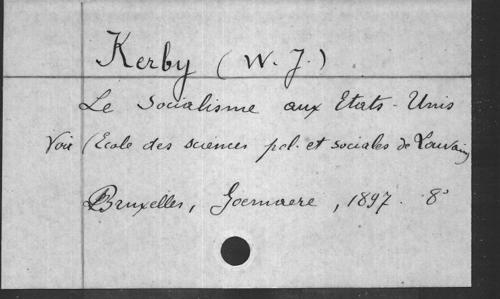 Kerby (W. J.)
Le Socialisme aux Etats-Unis
Voir (Ecole des sciences pol. et sociales de Louvain)
Bruxelles, Goemaere, 1897. 8°